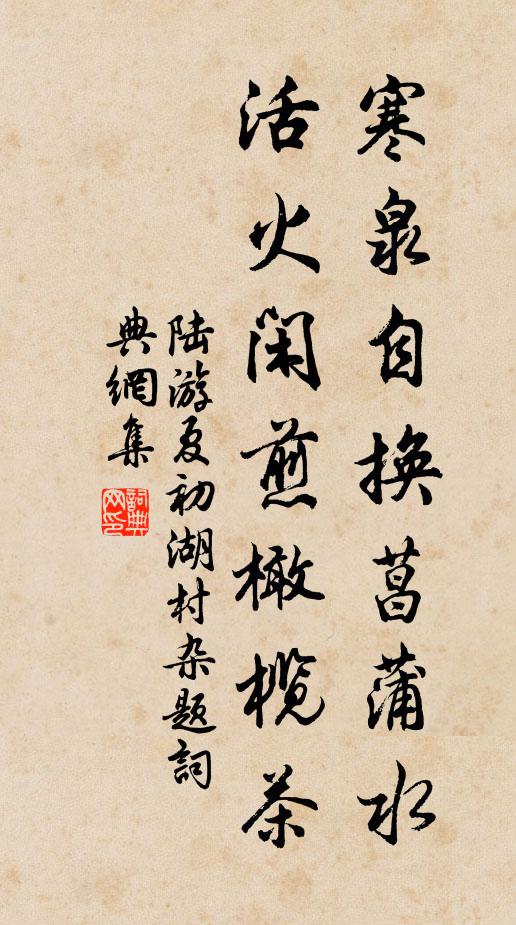 寒泉自换菖蒲水
活火闲煎橄榄茶
陆游夏初湖村杂题詞
典網集
詞典网印